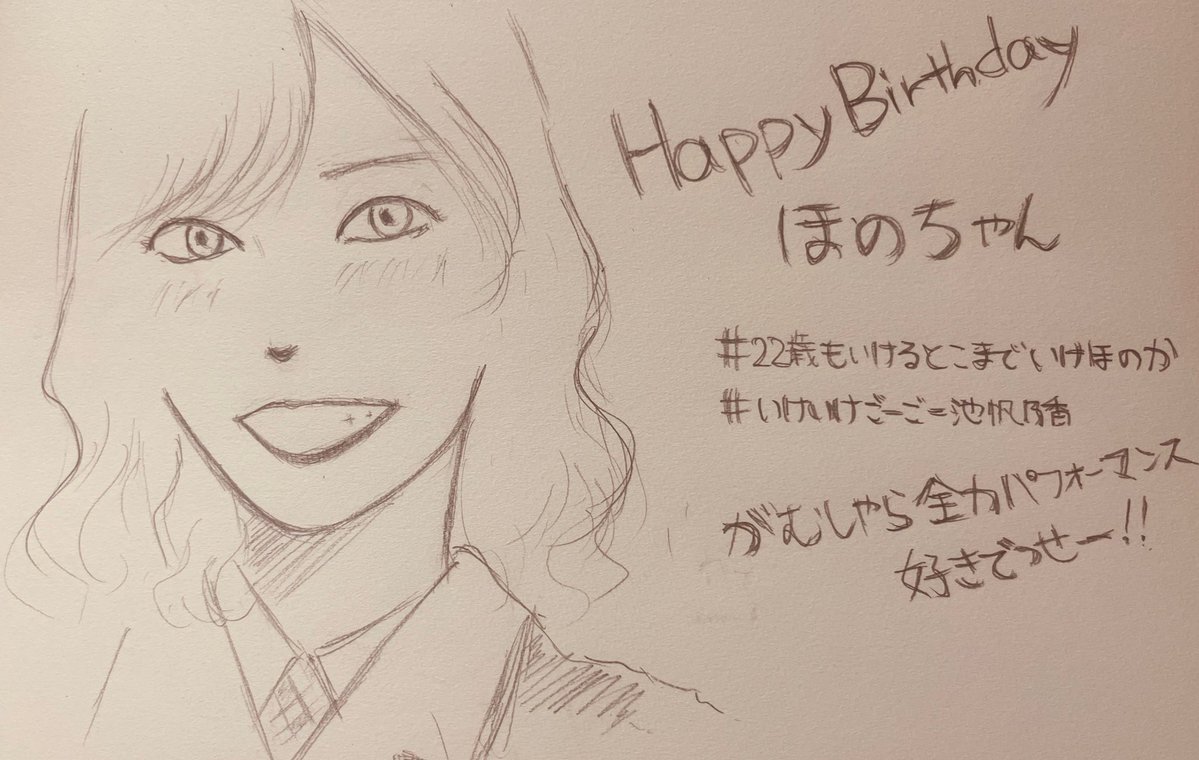 Happy Birthday
ほのちゃん
#22歳もいけるとこまでいけほのか
#いけいけごーごー池帆乃香
がむしゃら全力パフォーマンス
好きでっせー!!